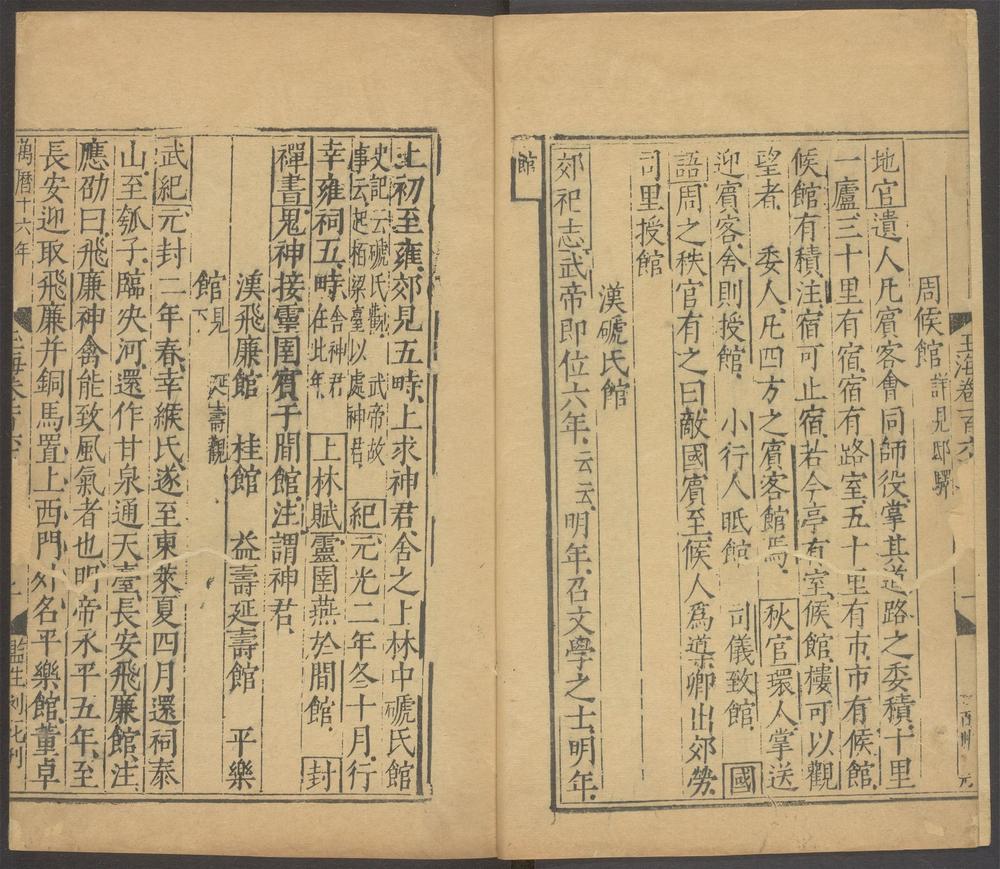 玉海卷一百六
周候館詳見邸驛
地官遺人凡賓客會同師役掌其道路之委積十里
一廬三十里有宿宿有路室五十里有市市有候館
候館有積注宿可止宿若今亭有室候館樓可以觀
望者 委人凡四方之賓客館焉 秋官環人掌送
迎賓客舍則授館 小行人眂館 司儀致館 國
語周之秩官有之曰敵國賓至候人爲導卿出郊勞
司里授館
漢磃氏館
郊祀志武帝即位六年云云明年召文學之士明年
館
上初至雍郊見五畤上求神君舍之上林中磃氏館
史記云磃氏觀 武帝故
事云起栢梁臺以處神君 紀元光二年冬十月行
幸雍祠五畤舍神君
在此年 上林賦靈圉燕於閒館 封
禪書鬼神接靈圉賓于閒館注謂神君
漢飛廉館 桂館 益壽延壽館 平樂
館下見 延壽觀
武紀元封二年春幸緱氏遂至東萊夏四月還祠泰
山至瓠子臨決河還作甘泉通天臺長安飛廉館注
應劭曰飛廉神禽能致風氣者也明帝永平五年至
長安迎取飛廉并銅馬置上西門外名平樂館董卓
萬曆十六年
監生劉